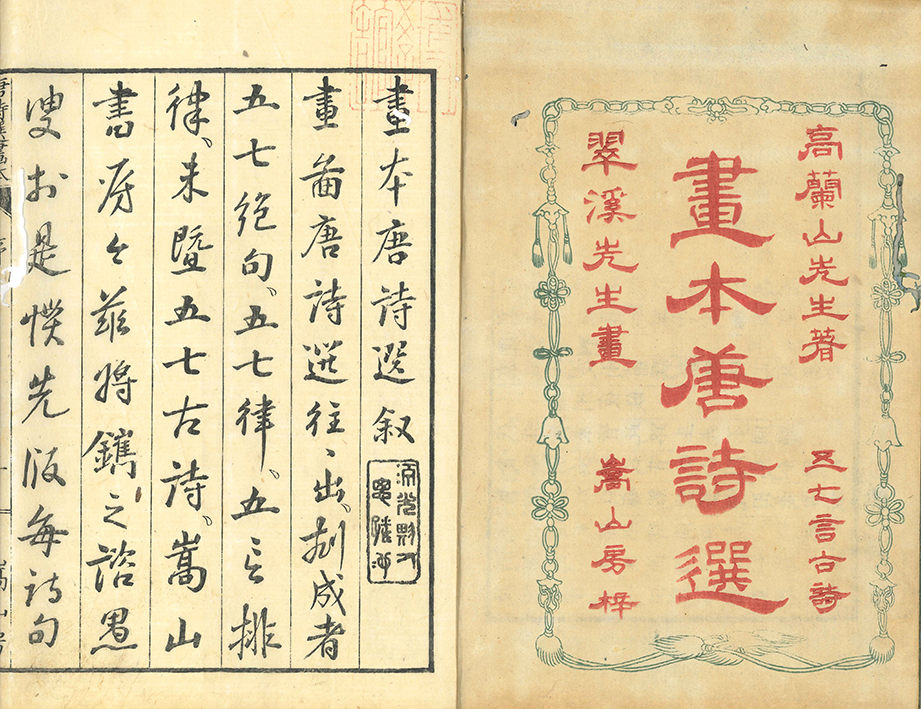 高蘭山先生著
五七言古詩
畫本唐詩選
翠溪先生畫
嵩山房梓
畫本唐詩選叙
畫圖唐詩選往〻出刻成者
五七絶句、五七律、五言排
律、未曁五七古詩、嵩山
書房今茲將鐫之諮愚
叟於是慔先版每詩句